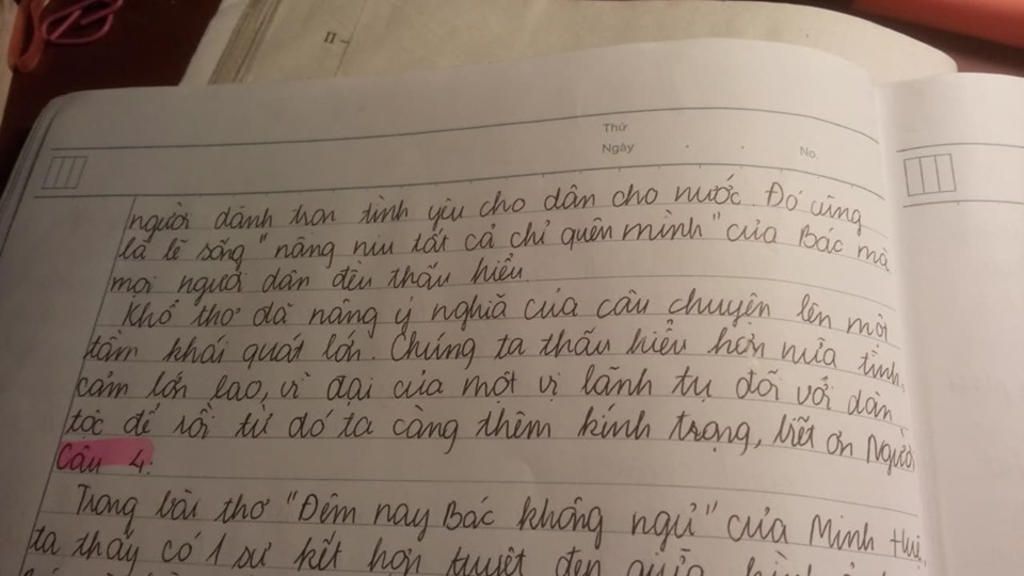 II-
Thứ
Ngày . . No.
người dành trọn tình yêu cho dân cho nước. Đó cũng
là lẽ sống "nâng niu tất cả chỉ quên mình" của Bác mà
mọi người dân đều thấu hiểu.
Khổ thơ đã nâng ý nghĩa của câu chuyện lên một
tầm khái quát lớn. Chúng ta thấu hiểu hơn nữa tình
cảm lớn lao, vĩ đại của một vị lãnh tụ đối với dân
tộc để rồi từ đó ta càng thêm kính trọng, biết ơn Người
Câu 4:
Trong bài thơ "Đêm nay Bác không ngủ" của Minh Huệ,
ta thấy có 1 sự kết hợp tuyệt đẹp giữa